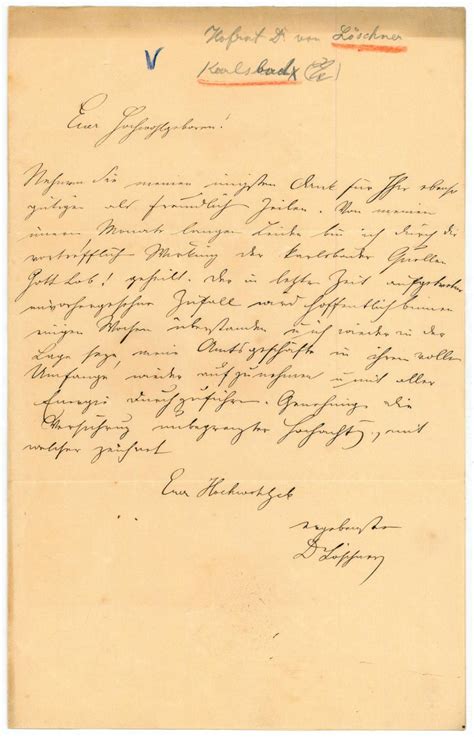 Hofrat Dr von Löschner
Karlsbad
Euer Hochwohlgeboren!
Nehmen Sie meinen innigsten Dank für Ihre ebenso
gütigen als freundlich Zeilen. Von meinem
innern Monate langen Leiden bin ich durch die
vortrefflich Wirkung der Karlsbader Quellen
Gott Lob! geheilt. Der in letzter Zeit aufgetretene
unvorhergesehene Zufall wird hoffentlich binnen
einigen Wochen überstanden u ich wieder in der
Lage sein, meine Amtsgeschäfte in ihrem vollen
Umfange wieder aufzunehmen u mit aller
Energie durchzuführen. Genehmige die
Versichrung unbegrenzter Hochacht., mit
welcher zeichnet
Euer Hochwohlgeb
ergebenster
Dr Löschner